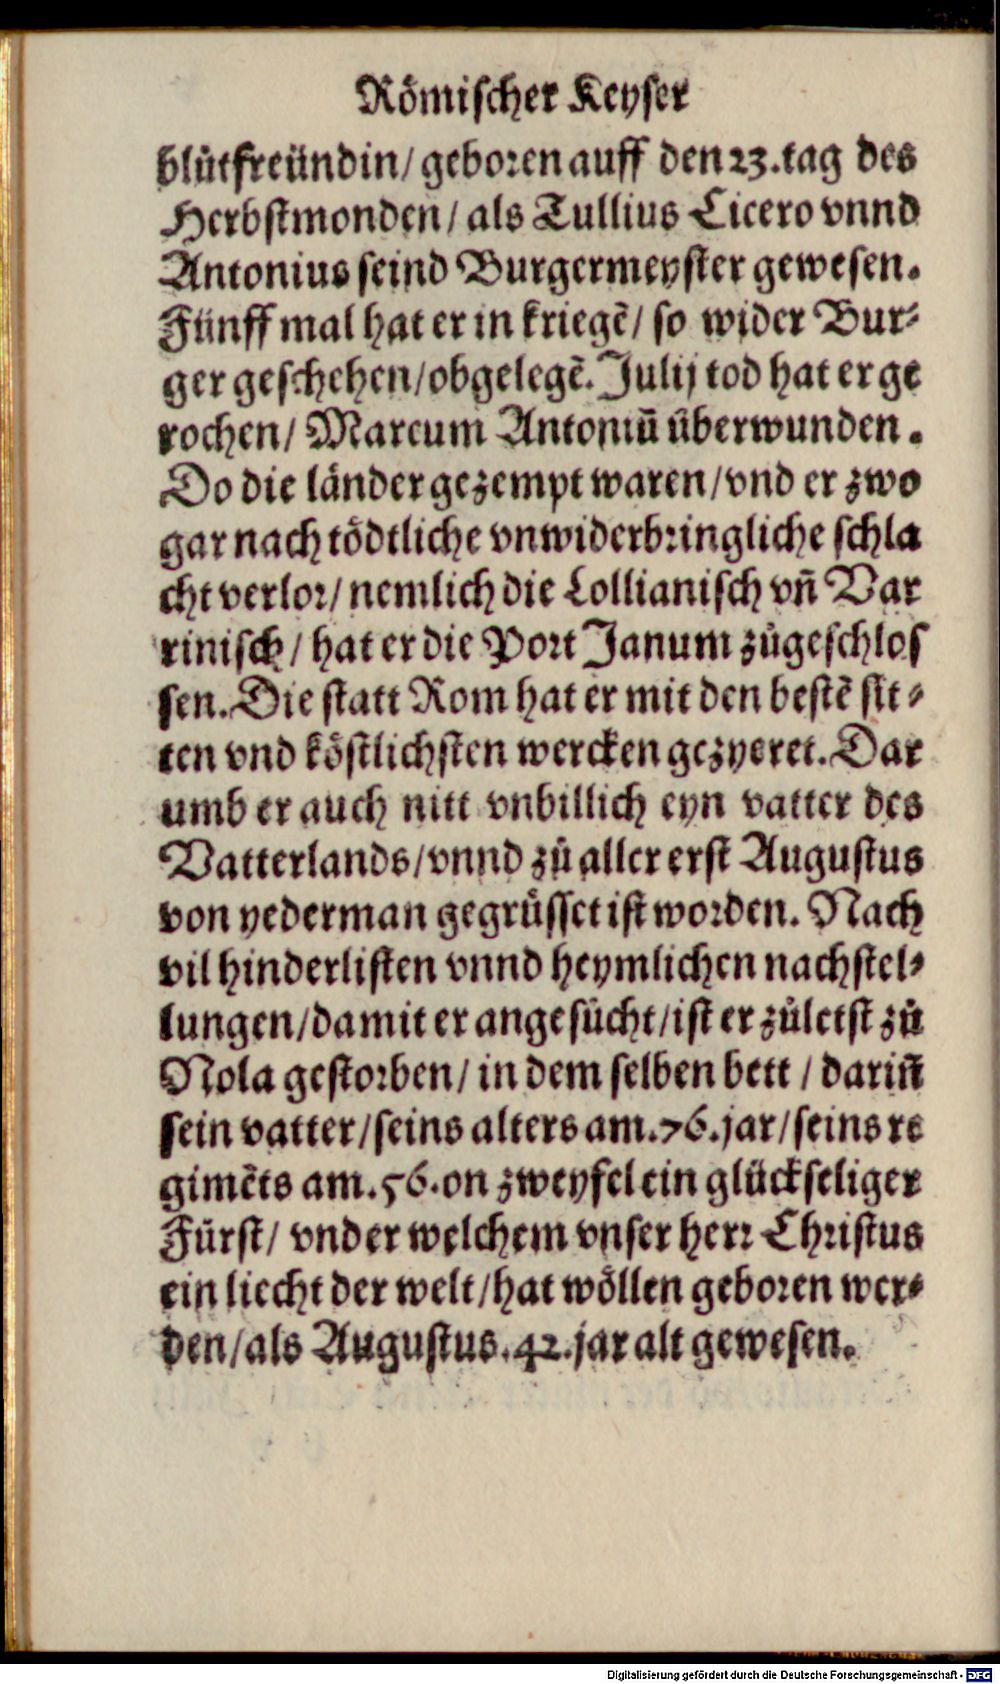 Römischer Keyser
blůtfreündin/ geboren auff den 23. tag des
Herbstmonden/ als Tullius Cicero vnnd
Antonius seind Burgermeyster gewesen.
Fünff mal hat er in kriegẽ/ so wider Bur⸗
ger geschehen/ obgelegẽ. Julij tod hat er ge
rochen/ Marcum Antoniũ überwunden.
Do die länder gezempt waren/ vnd er zwo
gar nach tödtliche vnwiderbringliche schla
cht verlor/ nemlich die Lollianisch vñ Var
rinisch/ hat er die Port Janum zůgeschlos
sen. Die statt Rom hat er mit den bestẽ sit⸗
ten vnd köstlichsten wercken gezyeret. Dar
umb er auch nitt vnbillich eyn vatter des
Vatterlands/ vnnd zů aller erst Augustus
von yederman gegrüsset ist worden. Nach
vil hinderlisten vnnd heymlichen nachstel⸗
lungen/ damit er angesücht/ ist er zůletst zů
Nola gestorben/ in dem selben bett/ dariñ
sein vatter/ seins alters am. 76. jar/ seins re
gimẽts am. 56. on zweyfel ein glückseliger
Fürst/ vnder welchem vnser herr Christus
ein liecht der welt/ hat wöllen geboren wer⸗
den/ als Augustus. 42. jar alt gewesen.
Digitalisierung gefördert durch die Deutsche Forschungsgemeinschaft - DFG